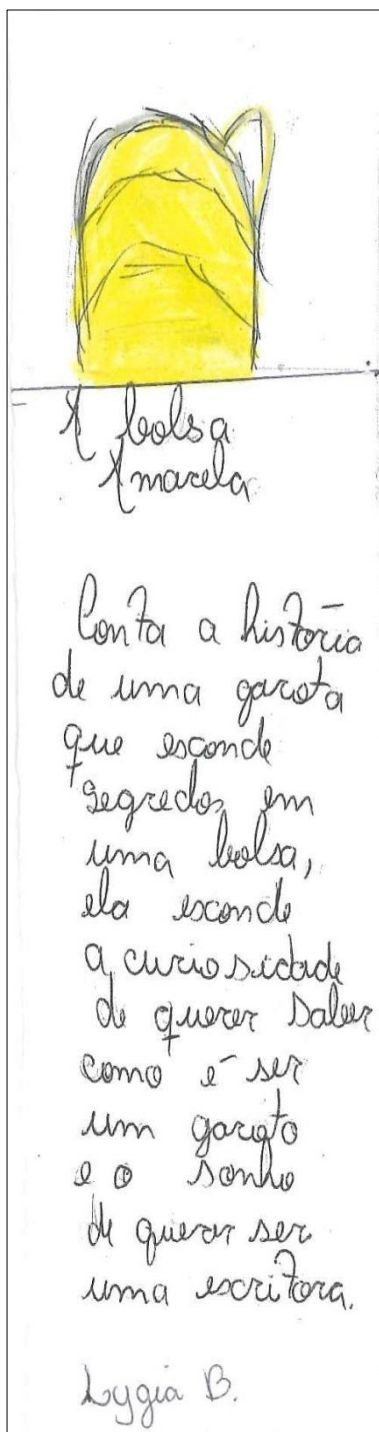 A bolsa
Amarela
Conta a história
de uma garota
que esconde
segredos em
uma bolsa,
ela esconde
a curiosidade
de querer saber
como é ser
um garoto
e o sonho
de querer ser
uma escritora.
Lygia B.